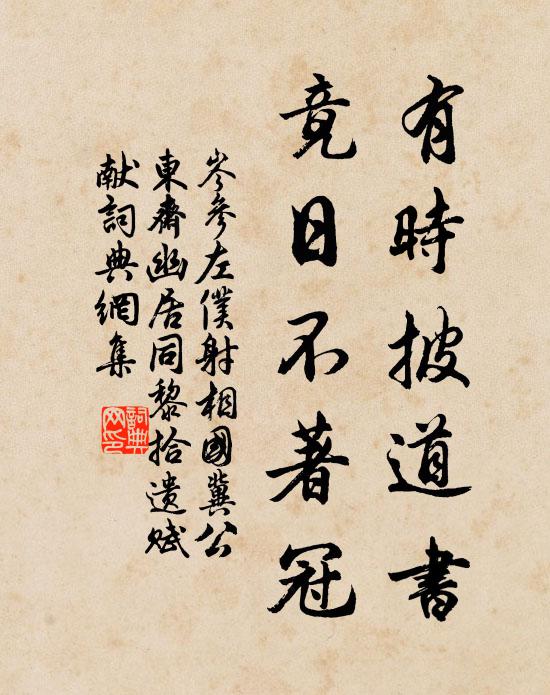 有時披道書
竟日不著冠
岑參左僕射相國冀公
東齋幽居同黎拾遺賦
献詞典網集
詞典
网印